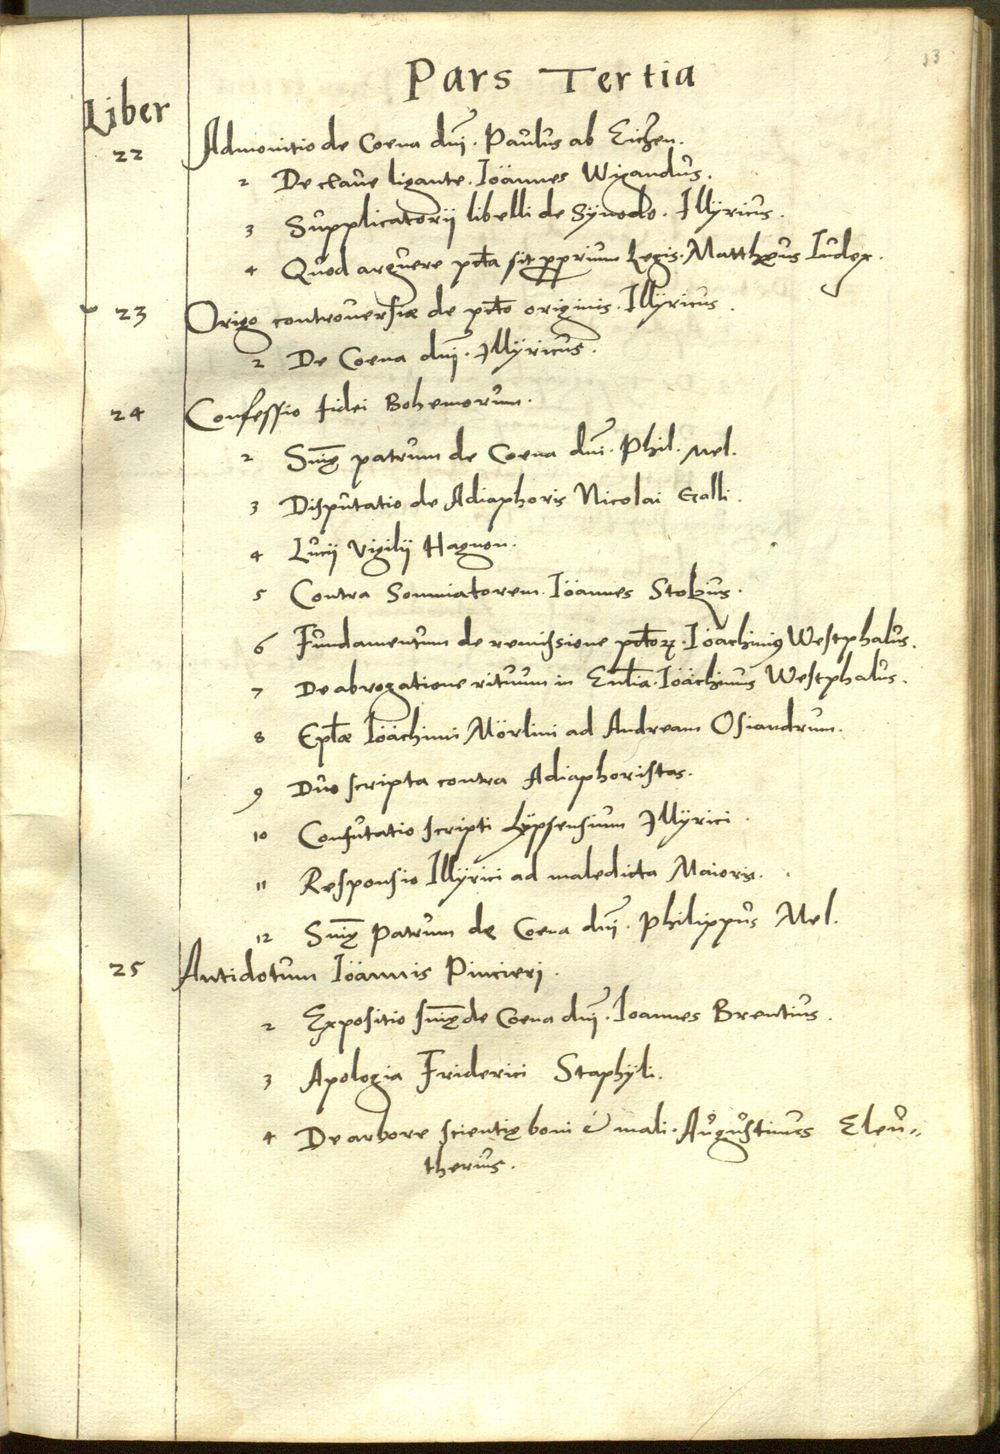 13
Pars Tertia
Liber
22 Admonitio de Coena dñi. Paulus ab Eitzen.
2 De claue ligante. Ioannes Wigandus.
3 Supplicatorij libelli de Synodo. Illyricus.
4 Quod arguere pctã sit pprium Legis. Matthęus Iudex.
23 Origo controuersiæ de pctõ originis. Illyricus.
2 De Coena dñi. Illyricus.
24 Confessio fidei Bohemorum.
2 Snię patrum de Coena dñi. Phil. Mel.
3 Disputatio de Adiaphoris Nicolai Galli.
4 Lucij Vigilij Hagnon.
5 Contra Somniatorem. Ioannes Stolzius.
6 Fundamentum de remissione pctõꝝ. Ioachimꝰ Westphalus.
7 De abrogatione rituum in Ecclia. Ioachimus Westphalus.
8 Eplæ Ioachimi Mörlini ad Andream Osiandrum.
9 Duo scripta contra Adiaphoristas.
10 Confutatio scripti Lypsensium Illyrici.
11 Responsio Illyrici ad maledicta Maioris.
12 Snię Patrum de Coena dñi. Philippus Mel.
25 Antidotum Ioannis Pincieri.
2 Expositio snię de Coena dñi. Ioannes Brentius.
3 Apologia Friderici Staphyli.
4 De arbore scientię boni & mali. Augustinus Eleu-
therius.